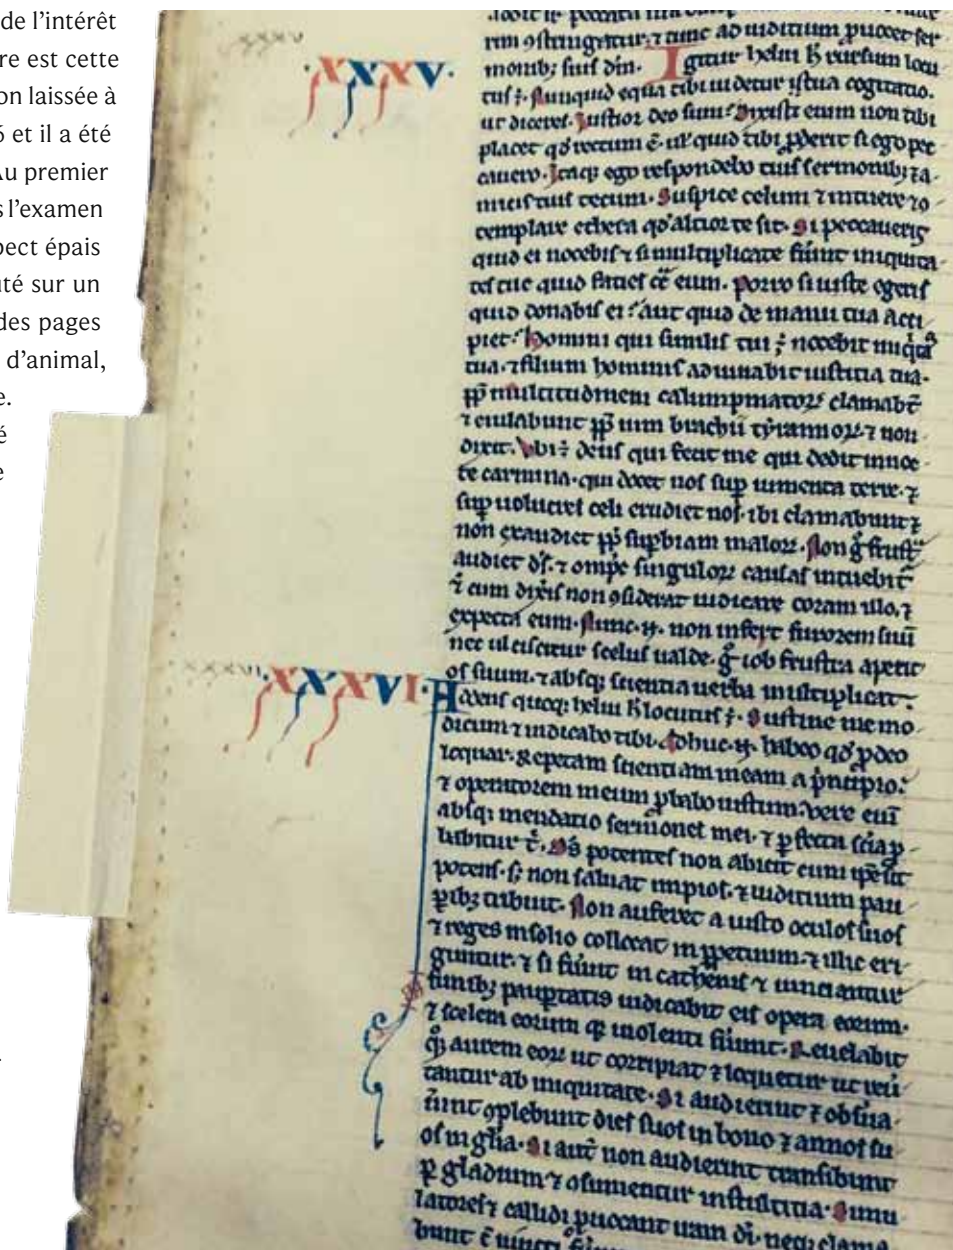 de l’intérêt
re est cette
on laissée à
6 et il a été
Au premier
s l’examen
pect épais
té sur un
des pages
d’animal,
e.
é
e
xxxv
·XXXV·
rim ɔstringetur. ⁊ tunc ad iuditium puocer ser
monibꝫ suis dm̄. Igitur heliu ħ rursum locu
tus ÷. Nunquid equa tibi uidetur ista cogitatio.
ut diceres. Iustior deo sum? Dixisti enim non tibi
placet qd̓ rectum ē. ul̓ quid tibi ꝓderit si ego pec
cauero. Itaqꝫ ego respondebo tuis sermonibꝫ ⁊ a
micis tuis tecum. Suspice celum ⁊ intuere ⁊ ɔ
templare ethera qd̓ altior te sit. Si peccaueris
quid ei nocebis ⁊ si multiplicate fuint iniquita
tes tue quid facies cͣ eum. Porro si iuste egeris
quid donabis ei? aut quid de manu tua acci
piet? Homini qui similis tui ÷ nocebit
tua. ⁊ filium hominis adiuuabit iustitia tua.
ꝓp̄ multitudinem calumpniatoꝝ clamabt̄
⁊ eiulabunt ꝓp̄ uim brachii tyrannoꝝ. ⁊ non
dixit. Vbi ÷ deus qui fecit me qui dedit in noc
te carmina. qui docet nos suꝑ iumenta terre. ⁊
suꝑ uolucres celi erudiet nos. ibi clamabunt ⁊
non exaudiet ꝓp̄ supbiam maloꝝ. Non g̊ frustͣ
audiet ds̄. ⁊ omp̄s singuloꝝ causas intuebit̄
⁊ cum dix̄is non ɔsiderat iudicare coram illo. ⁊
expecta eum. Nunc .n. non infert furorem suū
nec ulciscitur scelus ualde. g̊ iob frustra aperit
os suum. ⁊ absqꝫ scientia uerba multiplicat.
xxxvi
·XXXVI· Addens quoqꝫ heliu ħ locutus ÷. Sustine me mo
dicum ⁊ indicabo tibi. Adhuc .n. habeo qd̓ ꝓ deo
loquar. Repetam scientiam meam a p̓ncipio.
⁊ operatorem meum ꝓbabo iustum. Vere eni̅
absqꝫ mendatio sermones mei. ⁊ ꝑfecta sci̅a ꝓ
babitur t̓. Ds̄ potentes non abicit cum ip̅e sit
potens. sꝫ non saluat impios. ⁊ iuditium pau
ꝑibꝫ tribuit. Non auferet a iusto oculos suos
⁊ reges in solio collocat in ꝑpetuum. ⁊ illic eri
guntur. ⁊ si fuint in cathenis ⁊ uinciantur
funibꝫ pauꝑtatis indicabit eis opera eorum.
⁊ scelera eorum qꝫ uiolenti fuint. Reuelabit
qꝫ aurem eoꝝ ut corripiat ⁊ loquetur ut reu̅
tantur ab iniquitate. Si audierint ⁊ obs̅ua
u̅int ɔplebunt dies suos in bono ⁊ annos su
os in gl̅ia. Si aut̅ non audierint transibunt
ꝑ gladium ⁊ ɔsumentur in stultitia. Simu
latores ⁊ callidi puocant iram di̅. neqꝫ clama
bunt c̅ uincti fuint